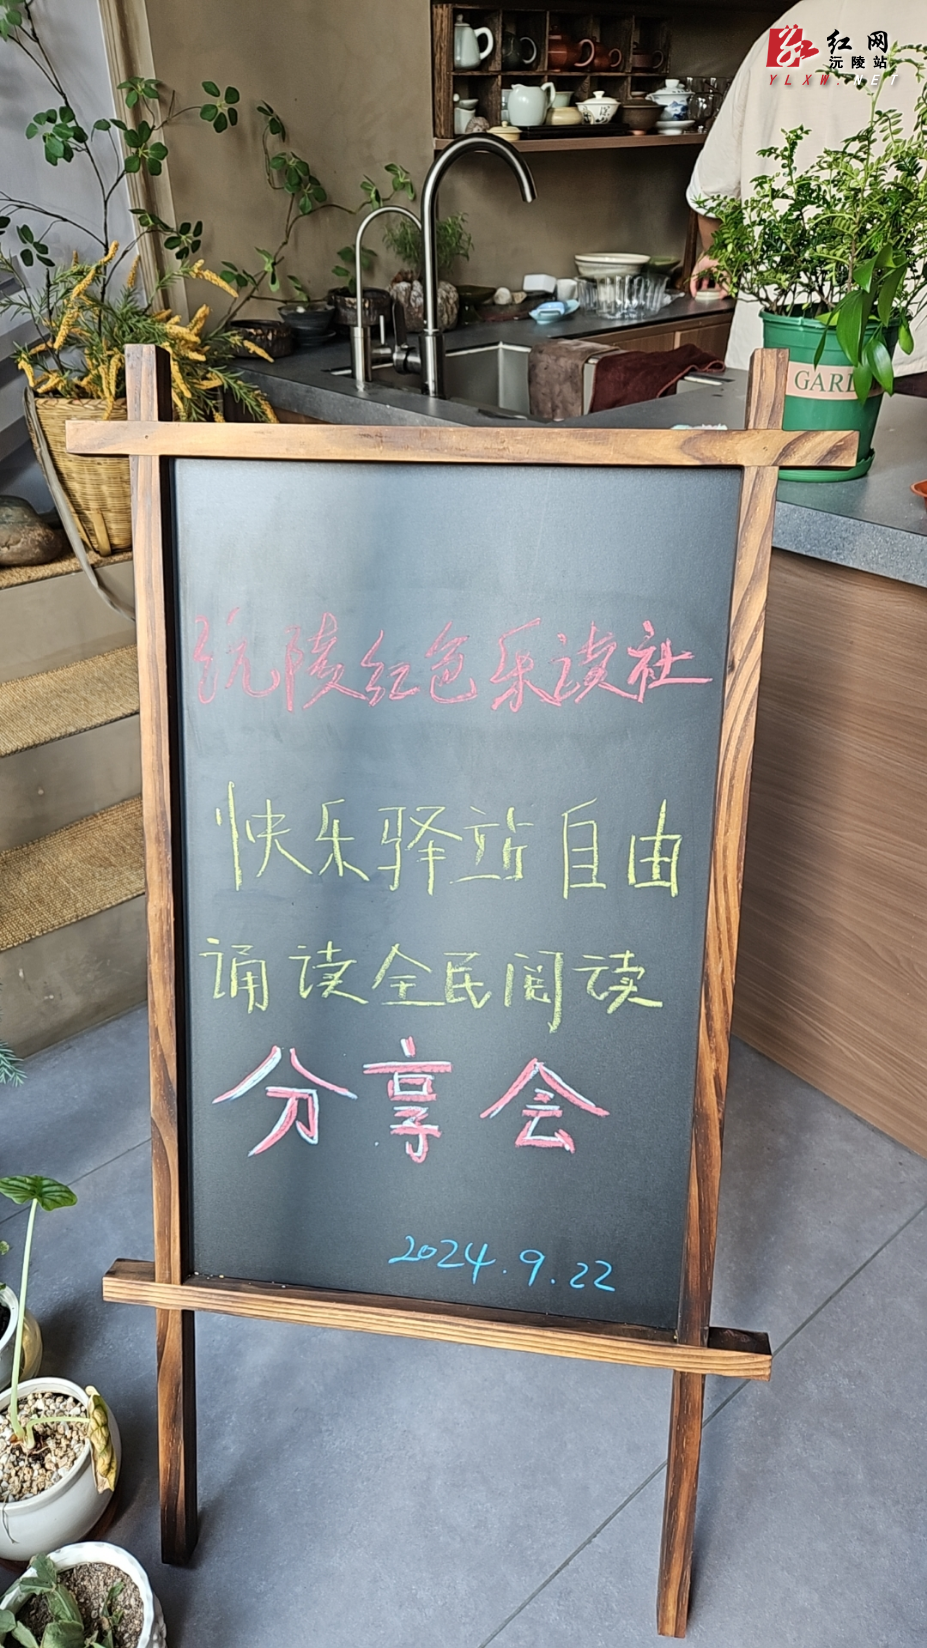 红网
沅陵站
YLXW.NET
GARD
沅陵红色乐读社
快乐驿站自由
诵读全民阅读
分享会
2024.9.22